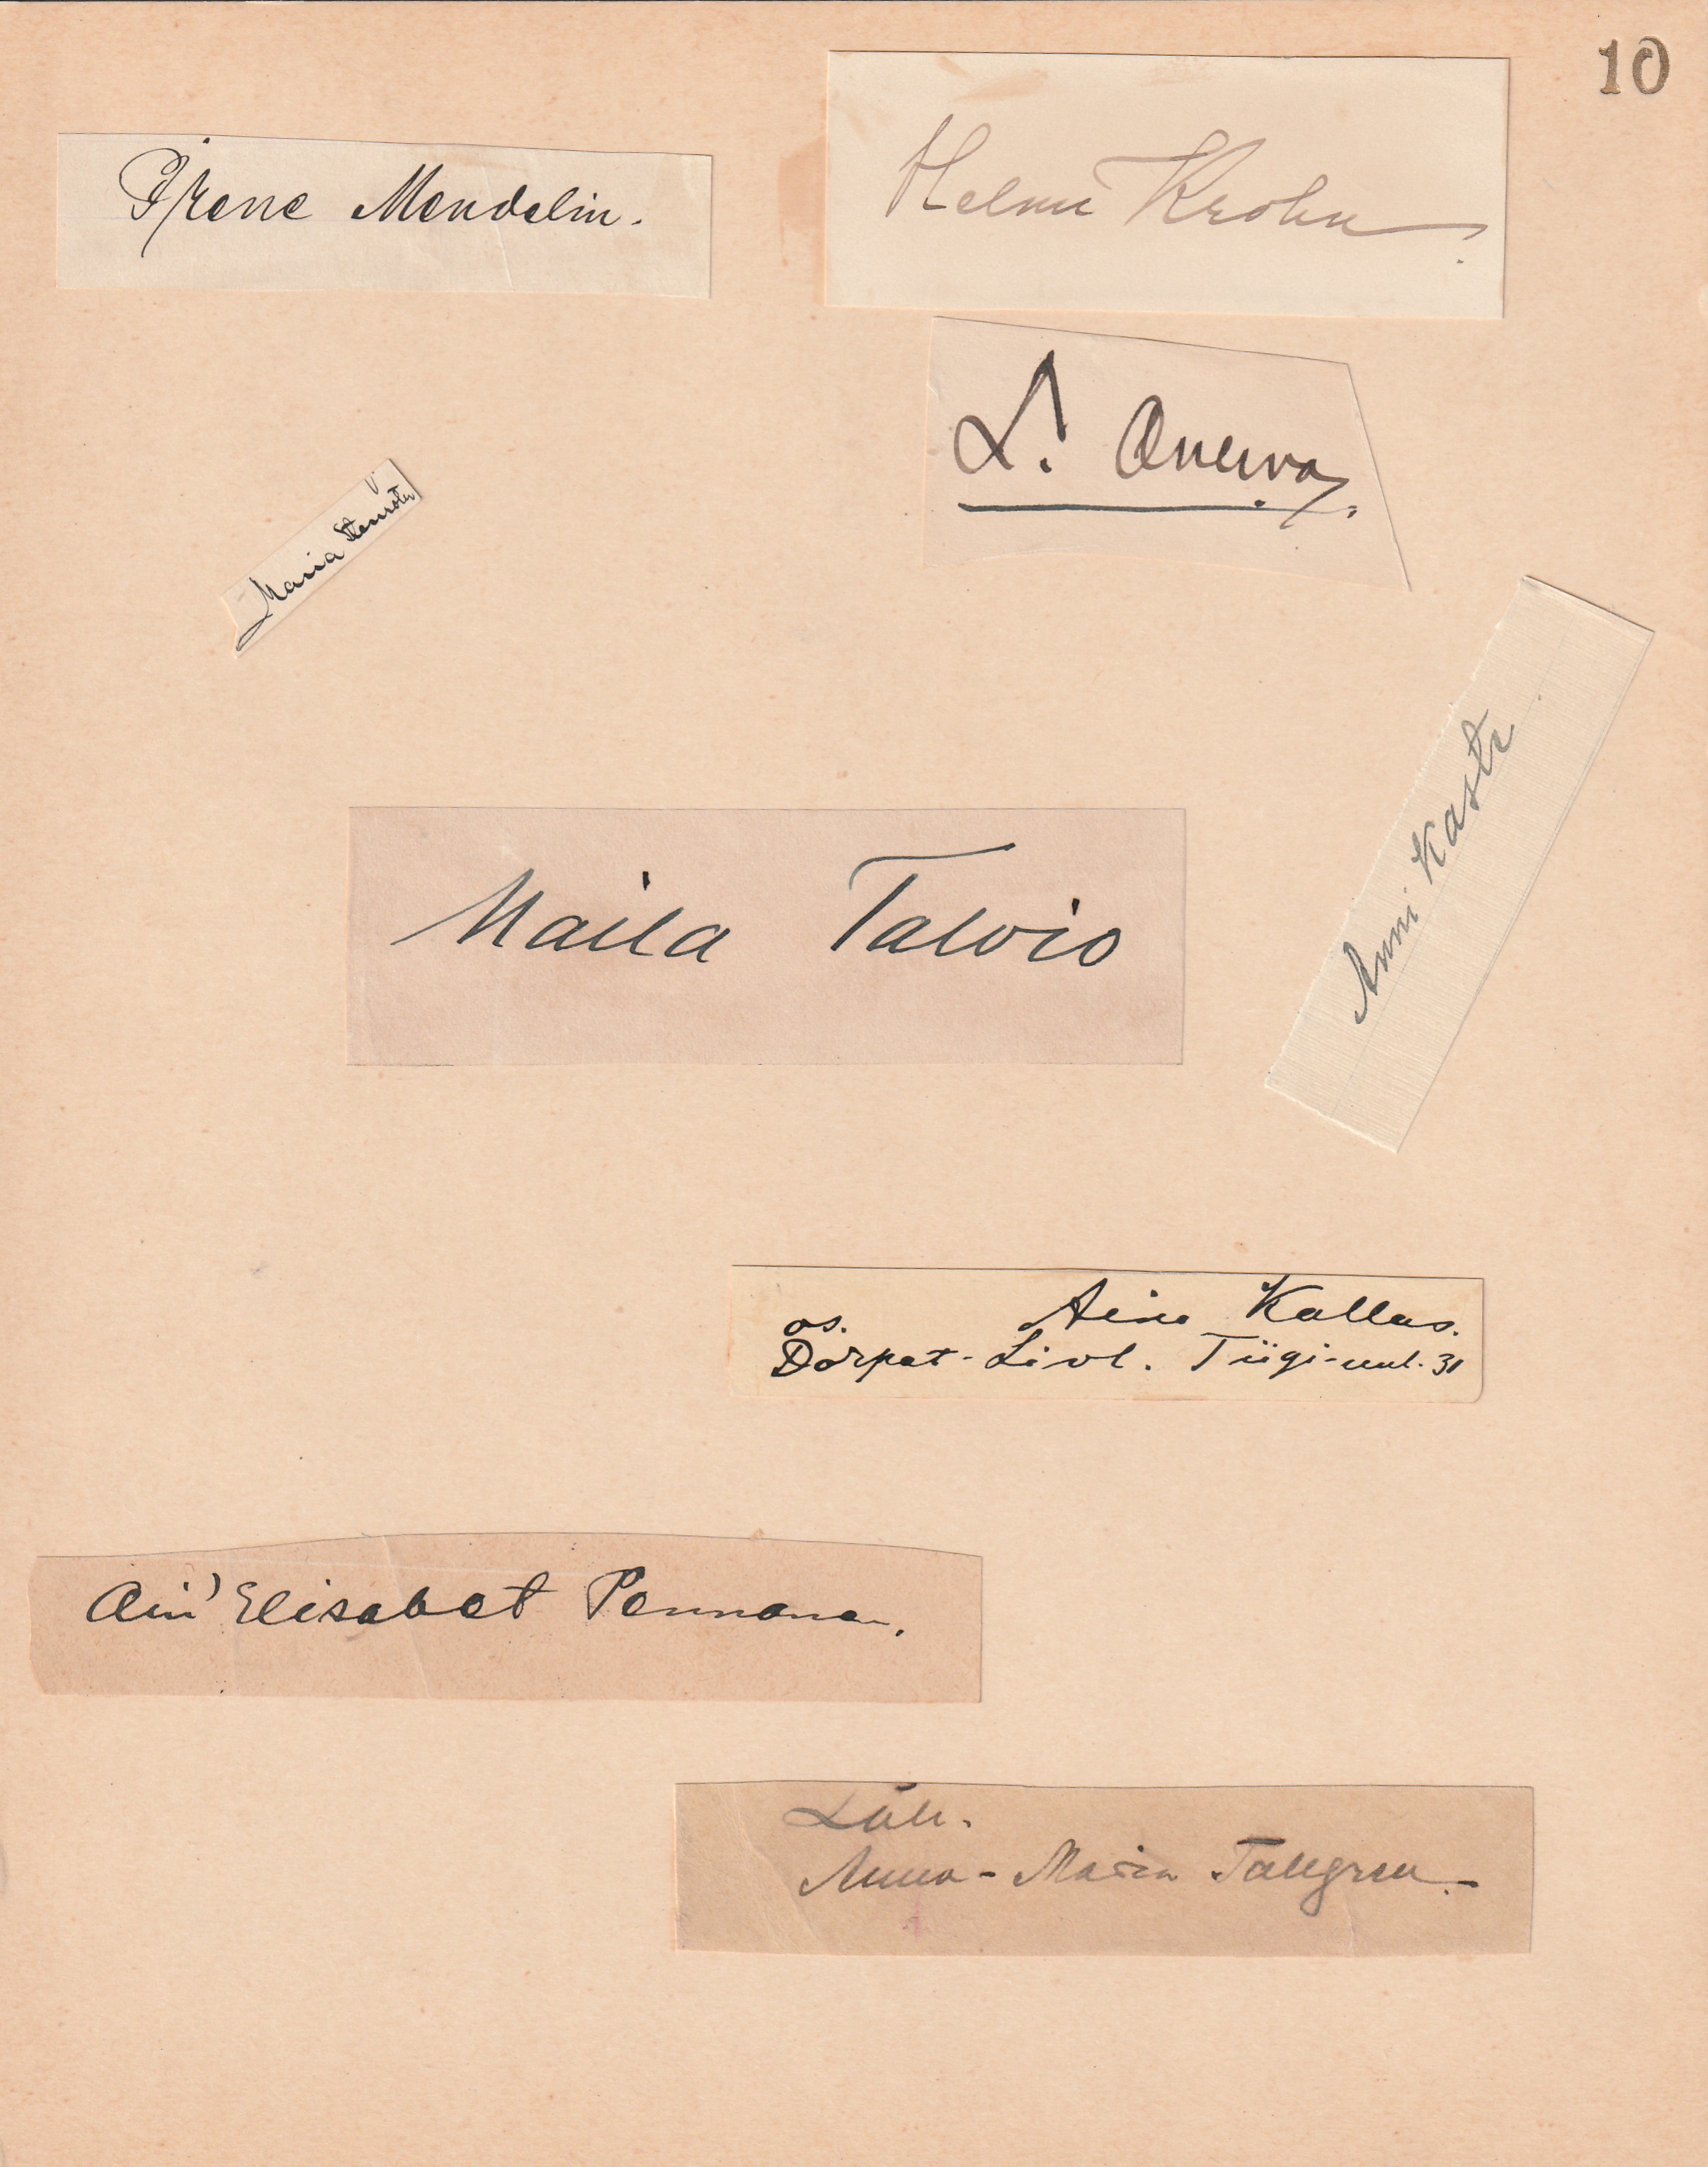 10
Irene Mendelin.
Helmi Krohn.
L. Onerva.
Maria
Maila Talvio
Anni Kastr.
Aino Kallas.
os.
Dorpat-Livl. Tiigi-uul. 31
Ain' Elisabet Pennanen.
Läh.
Anna-Maria Tallgren.-